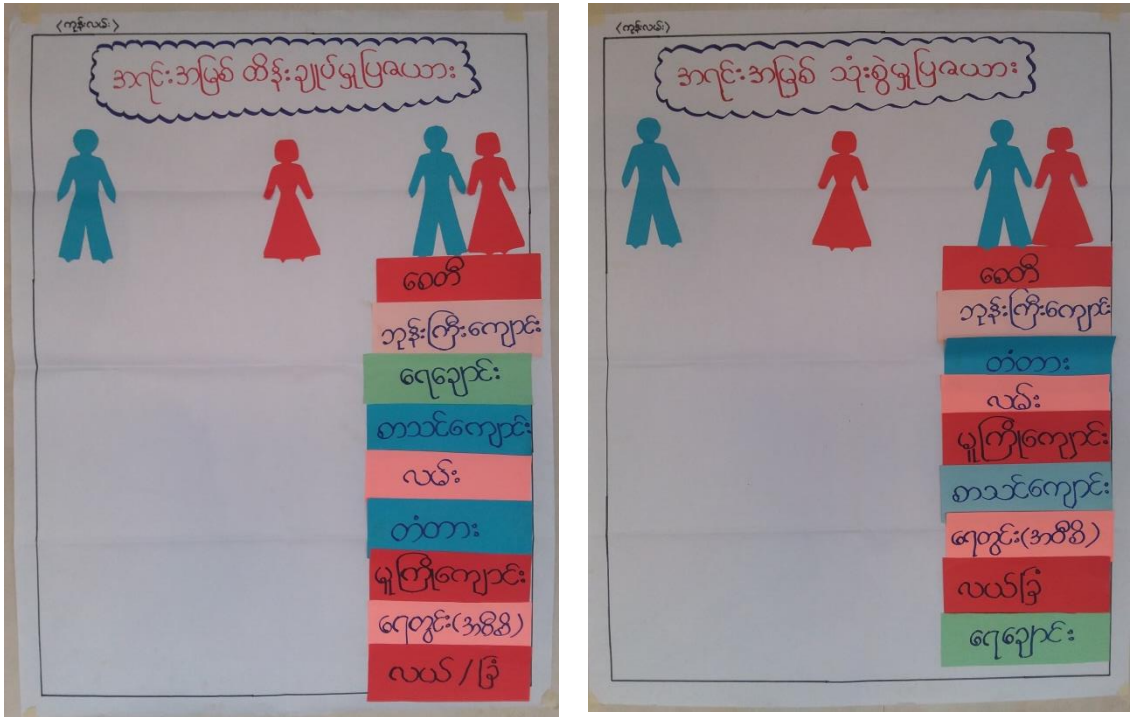 (ကုန်းလမ်း)
အရင်းအမြစ် ထိန်းချုပ်မှုပြဇယား
စေတီ
ဘုန်းကြီးကျောင်း
ရေချောင်း
စာသင်ကျောင်း
လမ်း
တံတား
မူကြိုကျောင်း
ရေတွင်း(အဝီစိ)
လယ်/ခြံ
(ကုန်းလမ်း)
အရင်းအမြစ် သုံးစွဲမှုပြဇယား
စေတီ
ဘုန်းကြီးကျောင်း
တံတား
လမ်း
မူကြိုကျောင်း
စာသင်ကျောင်း
ရေတွင်း(အဝီစိ)
လယ်ခြံ
ရေချောင်း